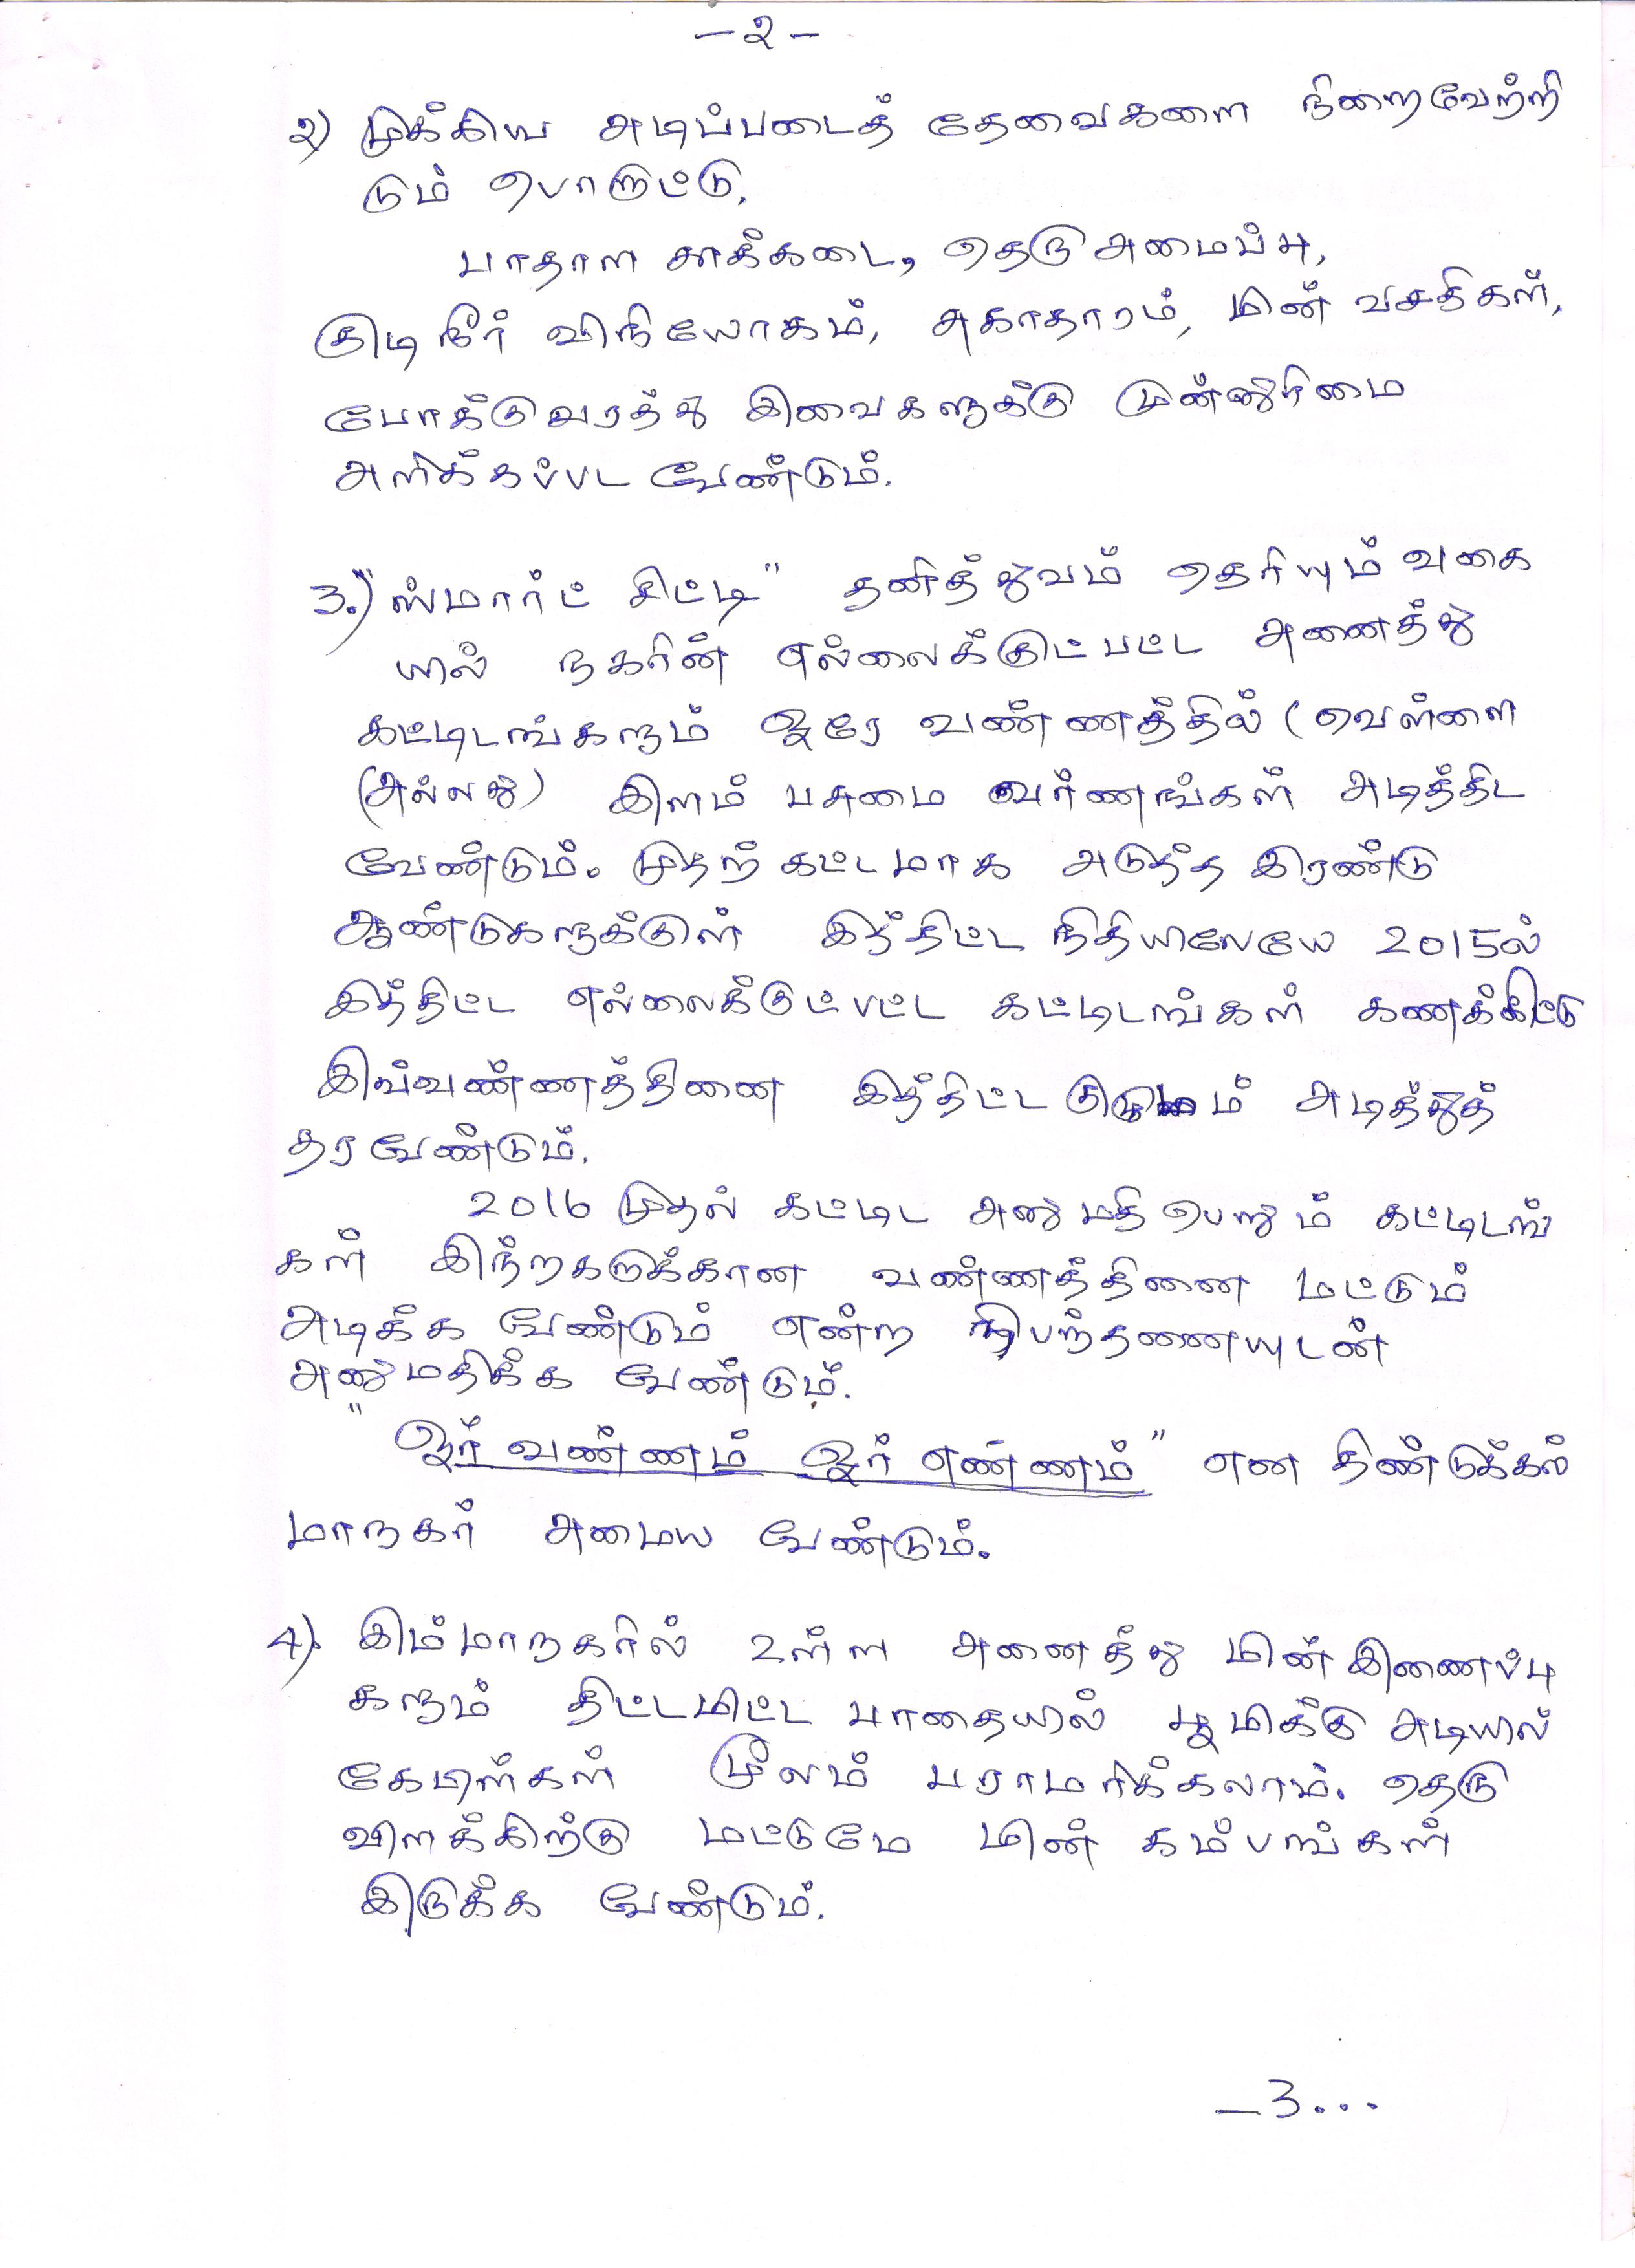 -2-
2) முக்கிய அடிப்படைத் தேவைகளை நிறைவேற்றி
டும் பொருட்டு,
பாதாள சாக்கடை, தெரு அமைப்பு,
குடிநீர் விநியோகம், சுகாதாரம், மின் வசதிகள்,
போக்குவரத்து இவைகளுக்கு முன்னுரிமை
அளிக்கப்பட வேண்டும்.
3.) "ஸ்மார்ட் சிட்டி" தனித்துவம் தெரியும் வகை
யில் நகரின் எல்லைக்குட்பட்ட அனைத்து
கட்டிடங்களும் ஒரே வண்ணத்தில் (வெள்ளை
(அல்லது) இளம் பசுமை வர்ணங்கள் அடித்திட
வேண்டும். முதற் கட்டமாக அடுத்த இரண்டு
ஆண்டுகளுக்குள் இத்திட்ட நிதியிலேயே 2015ல்
இத்திட்ட எல்லைக்குட்பட்ட கட்டிடங்கள் கணக்கிட்டு
இவ்வண்ணத்தினை இத்திட்ட குழுமம் அடித்துத்
தரவேண்டும்.
2016 முதல் கட்டிட அனுமதி பெறும் கட்டிடங்
கள் இந்நகருக்கான வண்ணத்தினை மட்டும்
அடிக்க வேண்டும் என்ற நிபந்தணையுடன்
அனுமதிக்க வேண்டும்.
"ஓர் வண்ணம் ஓர் எண்ணம்" என திண்டுக்கல்
மாநகர் அமைய வேண்டும்.
4). இம்மாநகரில் உள்ள அனைத்து மின் இணைப்பு
களும் திட்டமிட்ட பாதையில் பூமிக்கு அடியில்
கேபிள்கள் மூலம் பராமரிக்கலாம். தெரு
விளக்கிற்கு மட்டுமே மின் கம்பங்கள்
இருக்க வேண்டும்.
-3...